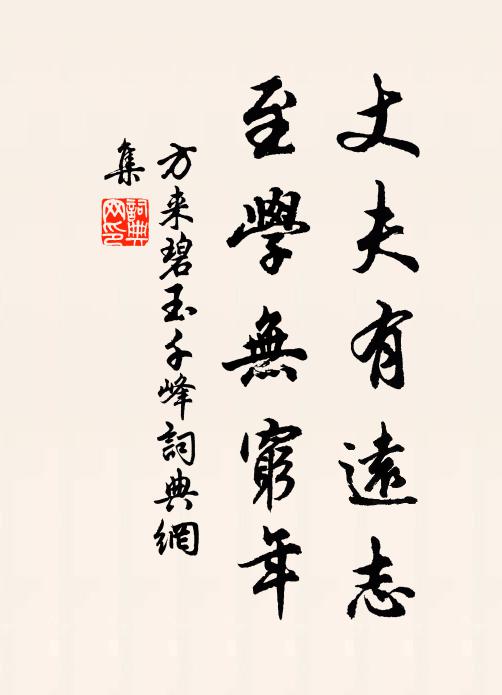 丈夫有遠志
至學無窮年
方来碧玉千峰詞典網
集
詞典網印